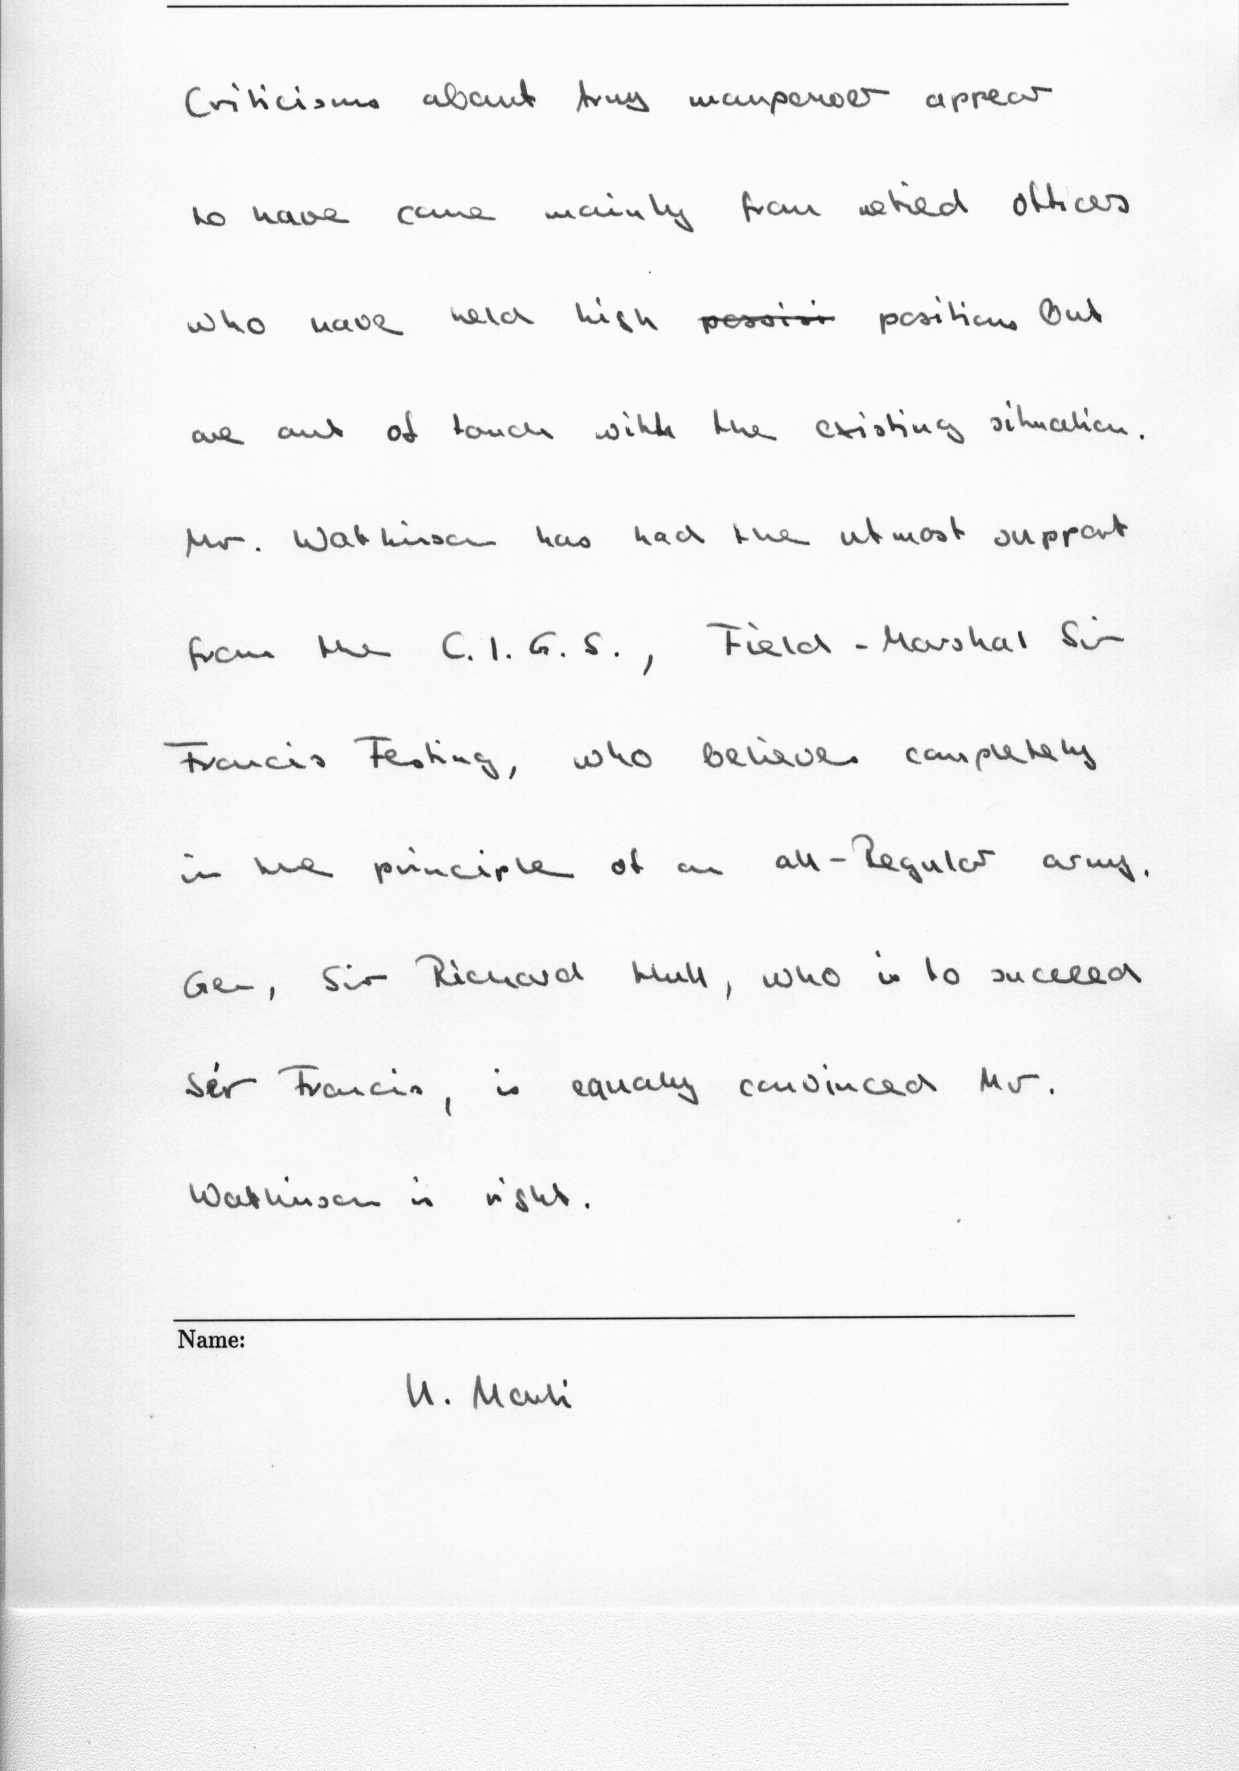 Criticisms about Army manpower appear
to have come mainly from retired officers
who have held high positions but
are out of touch with the existing situation.
Mr. Watkinson has had the utmost support
from the C.I.G.S., Field-Marshal Sir
Francis Festing, who believes completely
in the principle of an all-Regular army.
Gen, Sir Richard Hull, who is to succeed
Sir Francis, is equally convinced Mr.
Watkinson is right.
Name: